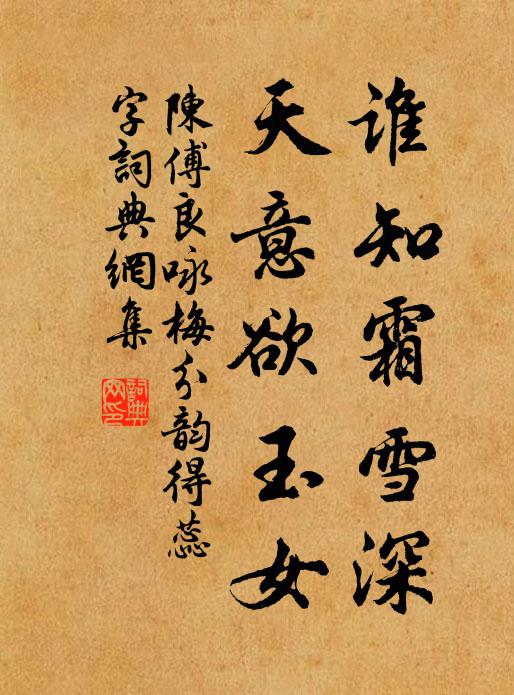 谁知霜雪深
天意欲玉女
陳傅良咏梅分韵得蕊
字詞典網集
詞典
网印